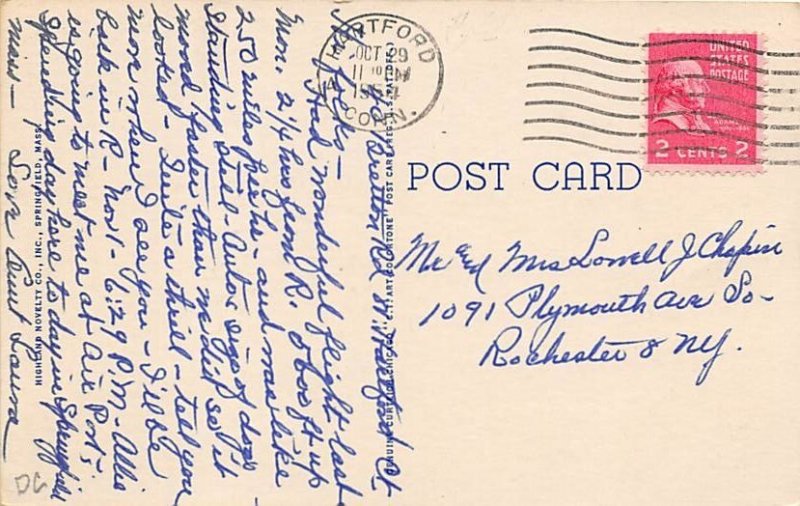 HARTFORD
OCT 29
1951
CONN.
UNITED
STATES
POSTAGE
2 CENTS 2
POST CARD
Mr and Mrs Lowell J. Chapin
1091 Plymouth Ave So-
Rochester 8 NY.
Bretton Rd W Hartford Ct
Hi folks -
Had wonderful flight last
Mon. 2 1/4 hrs from R. 7600 ft up
250 miles per hr - and was like
standing still - Autos size of dogs -
moved faster than we did so it
looked - Quite a thrill - tell you
more when I see you - I'll be
back in R - Nov 1 - 6:29 P.M. - Allis
is going to meet me at Air Port;
Spending day here to day in Springfield
Mass - Love Aunt Laura
GENUINE CURTEICH-CHICAGO "C.T. ART-COLORTONE" POST CARD (REG. U.S. PAT. OFF.)
HIGHLAND NOVELTY CO., INC., SPRINGFIELD, MASS.